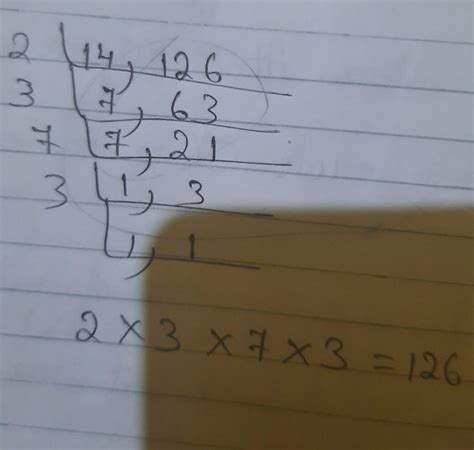 2 14, 126
3 7, 63
7 7, 21
3 1, 3
1, 1
2 × 3 × 7 × 3 = 126